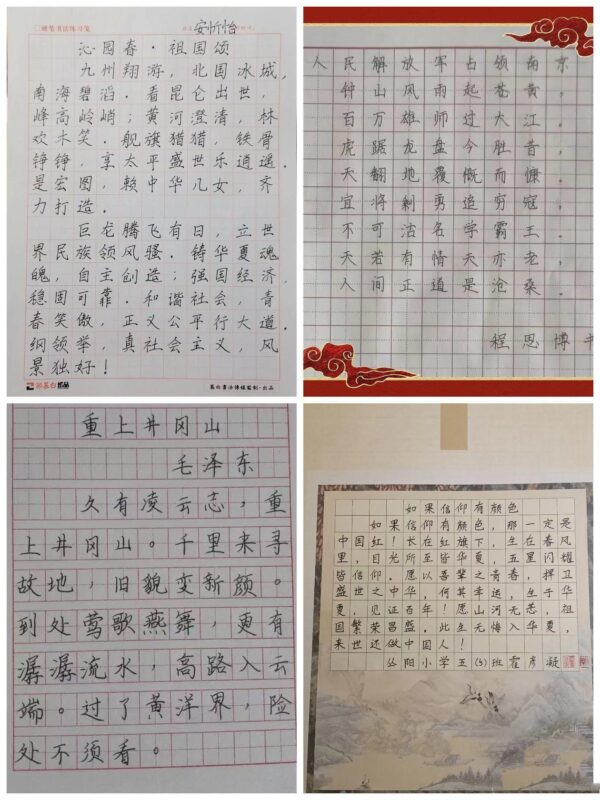 硬笔书法练习笺
安忻怡
沁园春·祖国颂
九州翔游，北国冰城，
南海碧滔．看昆仑出世，
峰高岭峭；黄河澄清，林
欢木笑．舰旗猎猎，铁骨
铮铮，享太平盛世乐逍遥．
是宏图，赖中华儿女，齐
力打造．
巨龙腾飞有日，立世
界民族领风骚．铸华夏魂
魄，自主创造；强国经济，
稳固可靠．和谐社会，青
春笑傲，正义公平行大道．
纲领举，真社会主义，风
景独好！
人民解放军占领南京
钟山风雨起苍黄，
百万雄师过大江．
虎踞龙盘今胜昔，
天翻地覆慨而慷．
宜将剩勇追穷寇，
不可沽名学霸王．
天若有情天亦老，
人间正道是沧桑．
程思博书
重上井冈山
毛泽东
久有凌云志，重
上井冈山。千里来寻
故地，旧貌变新颜。
到处莺歌燕舞，更有
潺潺流水，高路入云
端。过了黄洋界，险
处不须看。
如果信仰有颜色
如果信仰有颜色，那一定是
中国红！长在红旗下，生在春风
里，目光所至皆华夏，五星闪耀
皆信仰．愿以吾辈之青春，捍卫
盛世之中华，何其幸运，生于华
夏，见证百年！愿山河无恙，祖
国繁荣昌盛．此生无悔入华夏，
来世还做中国人！
丛阳小学五(5)班霍彦凝